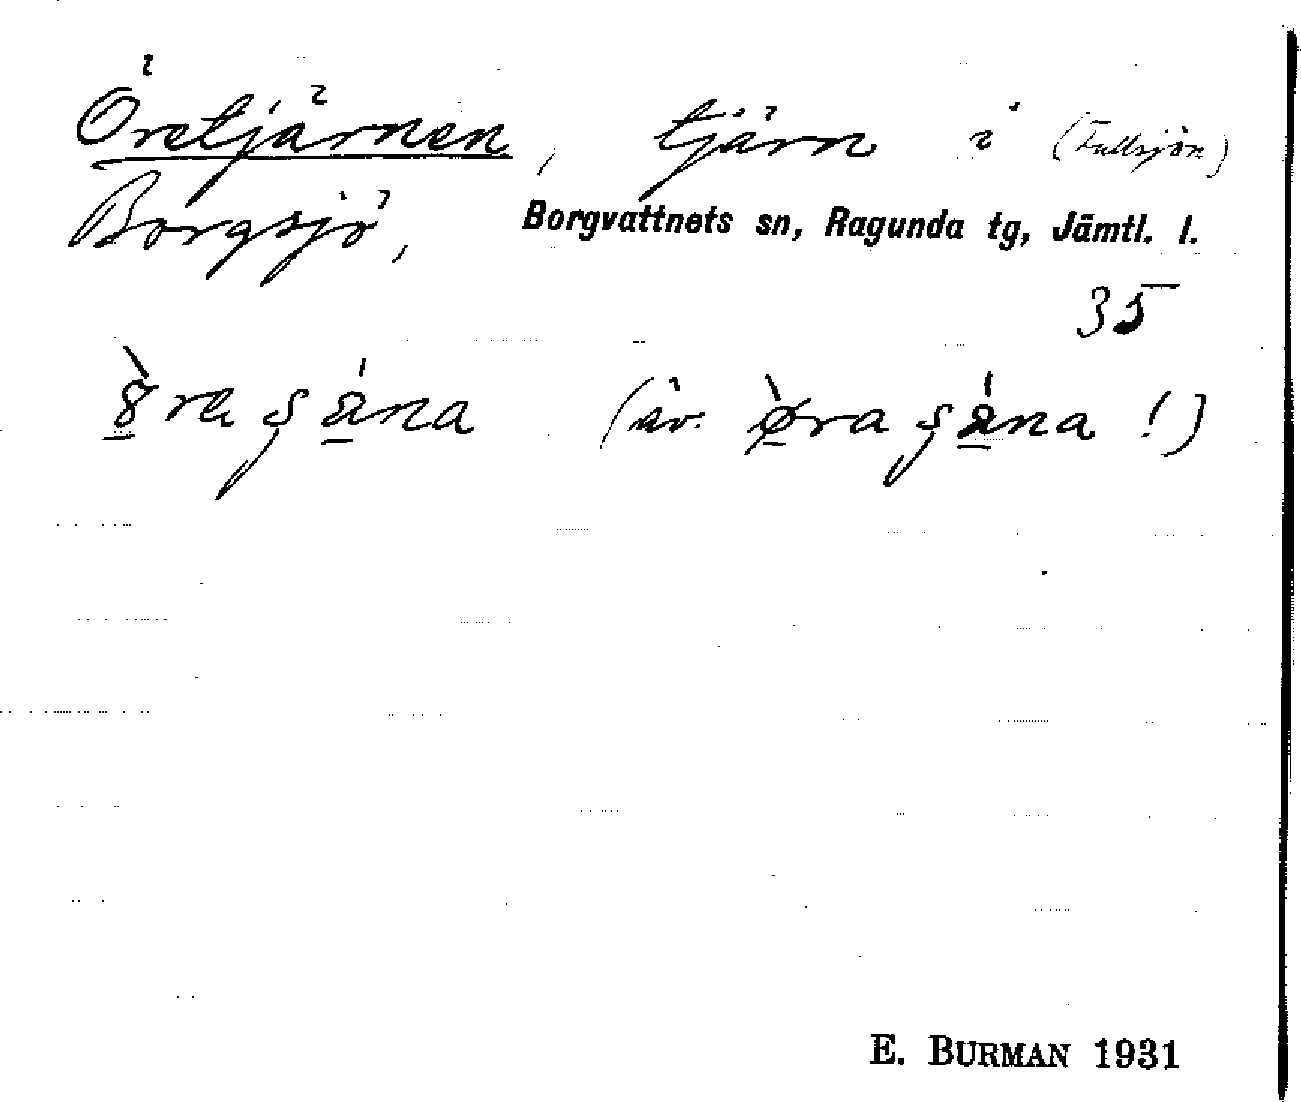 Öretjärnen, tjärn i (Fullsjön)
Borgsjö, Borgvattnets sn, Ragunda tg, Jämtl. l.
35
(äv. !)
E. BURMAN 1931